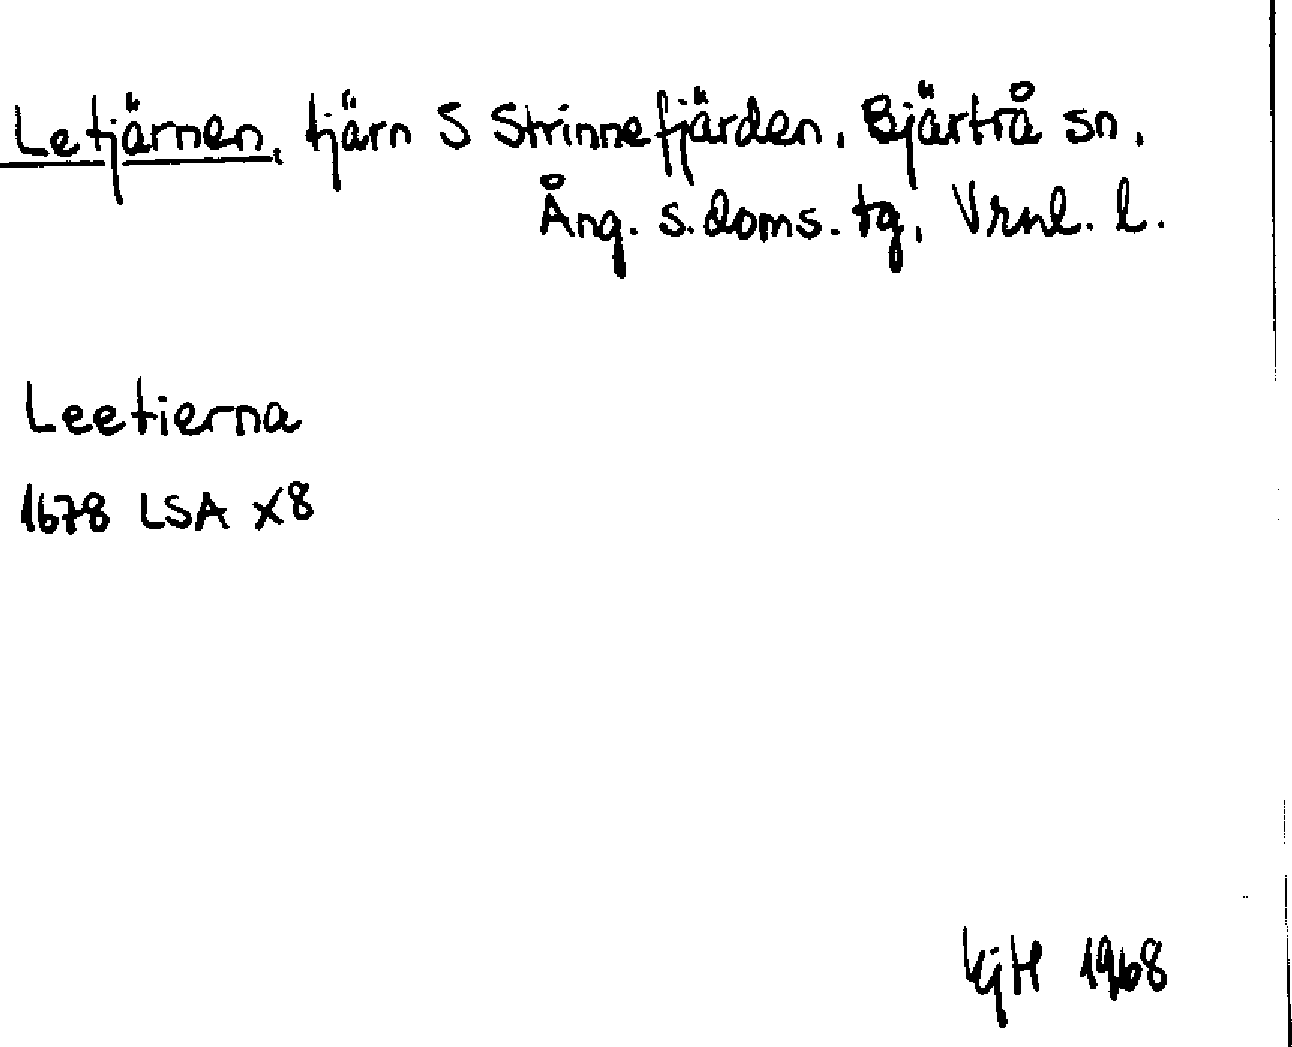 Letjärnen, tjärn S Strinnefjärden, Bjärtrå sn,
Ång. s. doms. tg, Vrnl. l.
Leetierna
1678 LSA X8
KjH 1968